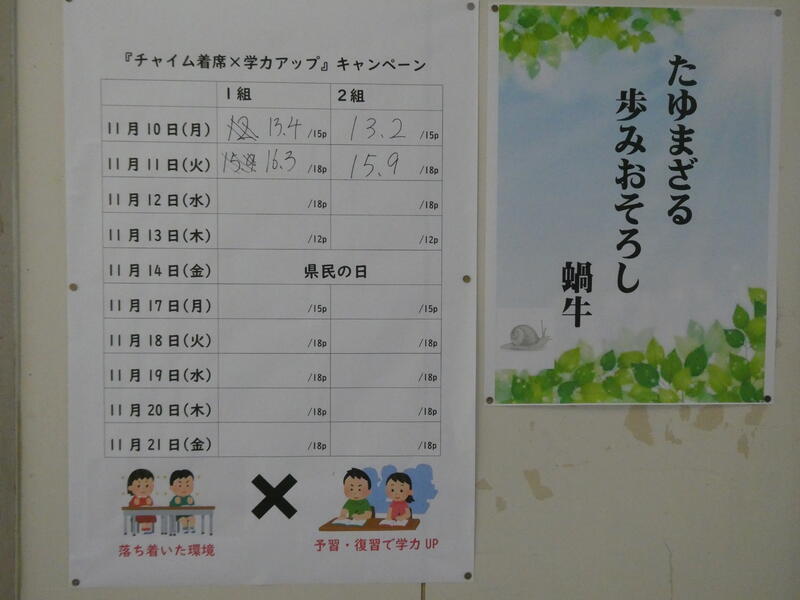 『チャイム着席×学力アップ』キャンペーン
1組 2組
11月10日(月) 13.4 /15p 13.2 /15p
11月11日(火) 16.3 /18p 15.9 /18p
11月12日(水) /18p /18p
11月13日(木) /12p /12p
11月14日(金) 県民の日
11月17日(月) /15p /15p
11月18日(火) /18p /18p
11月19日(水) /18p /18p
11月20日(木) /18p /18p
11月21日(金) /18p /18p
落ち着いた環境
予習・復習で学力UP
たゆまざる
歩みおそろし
蝸牛